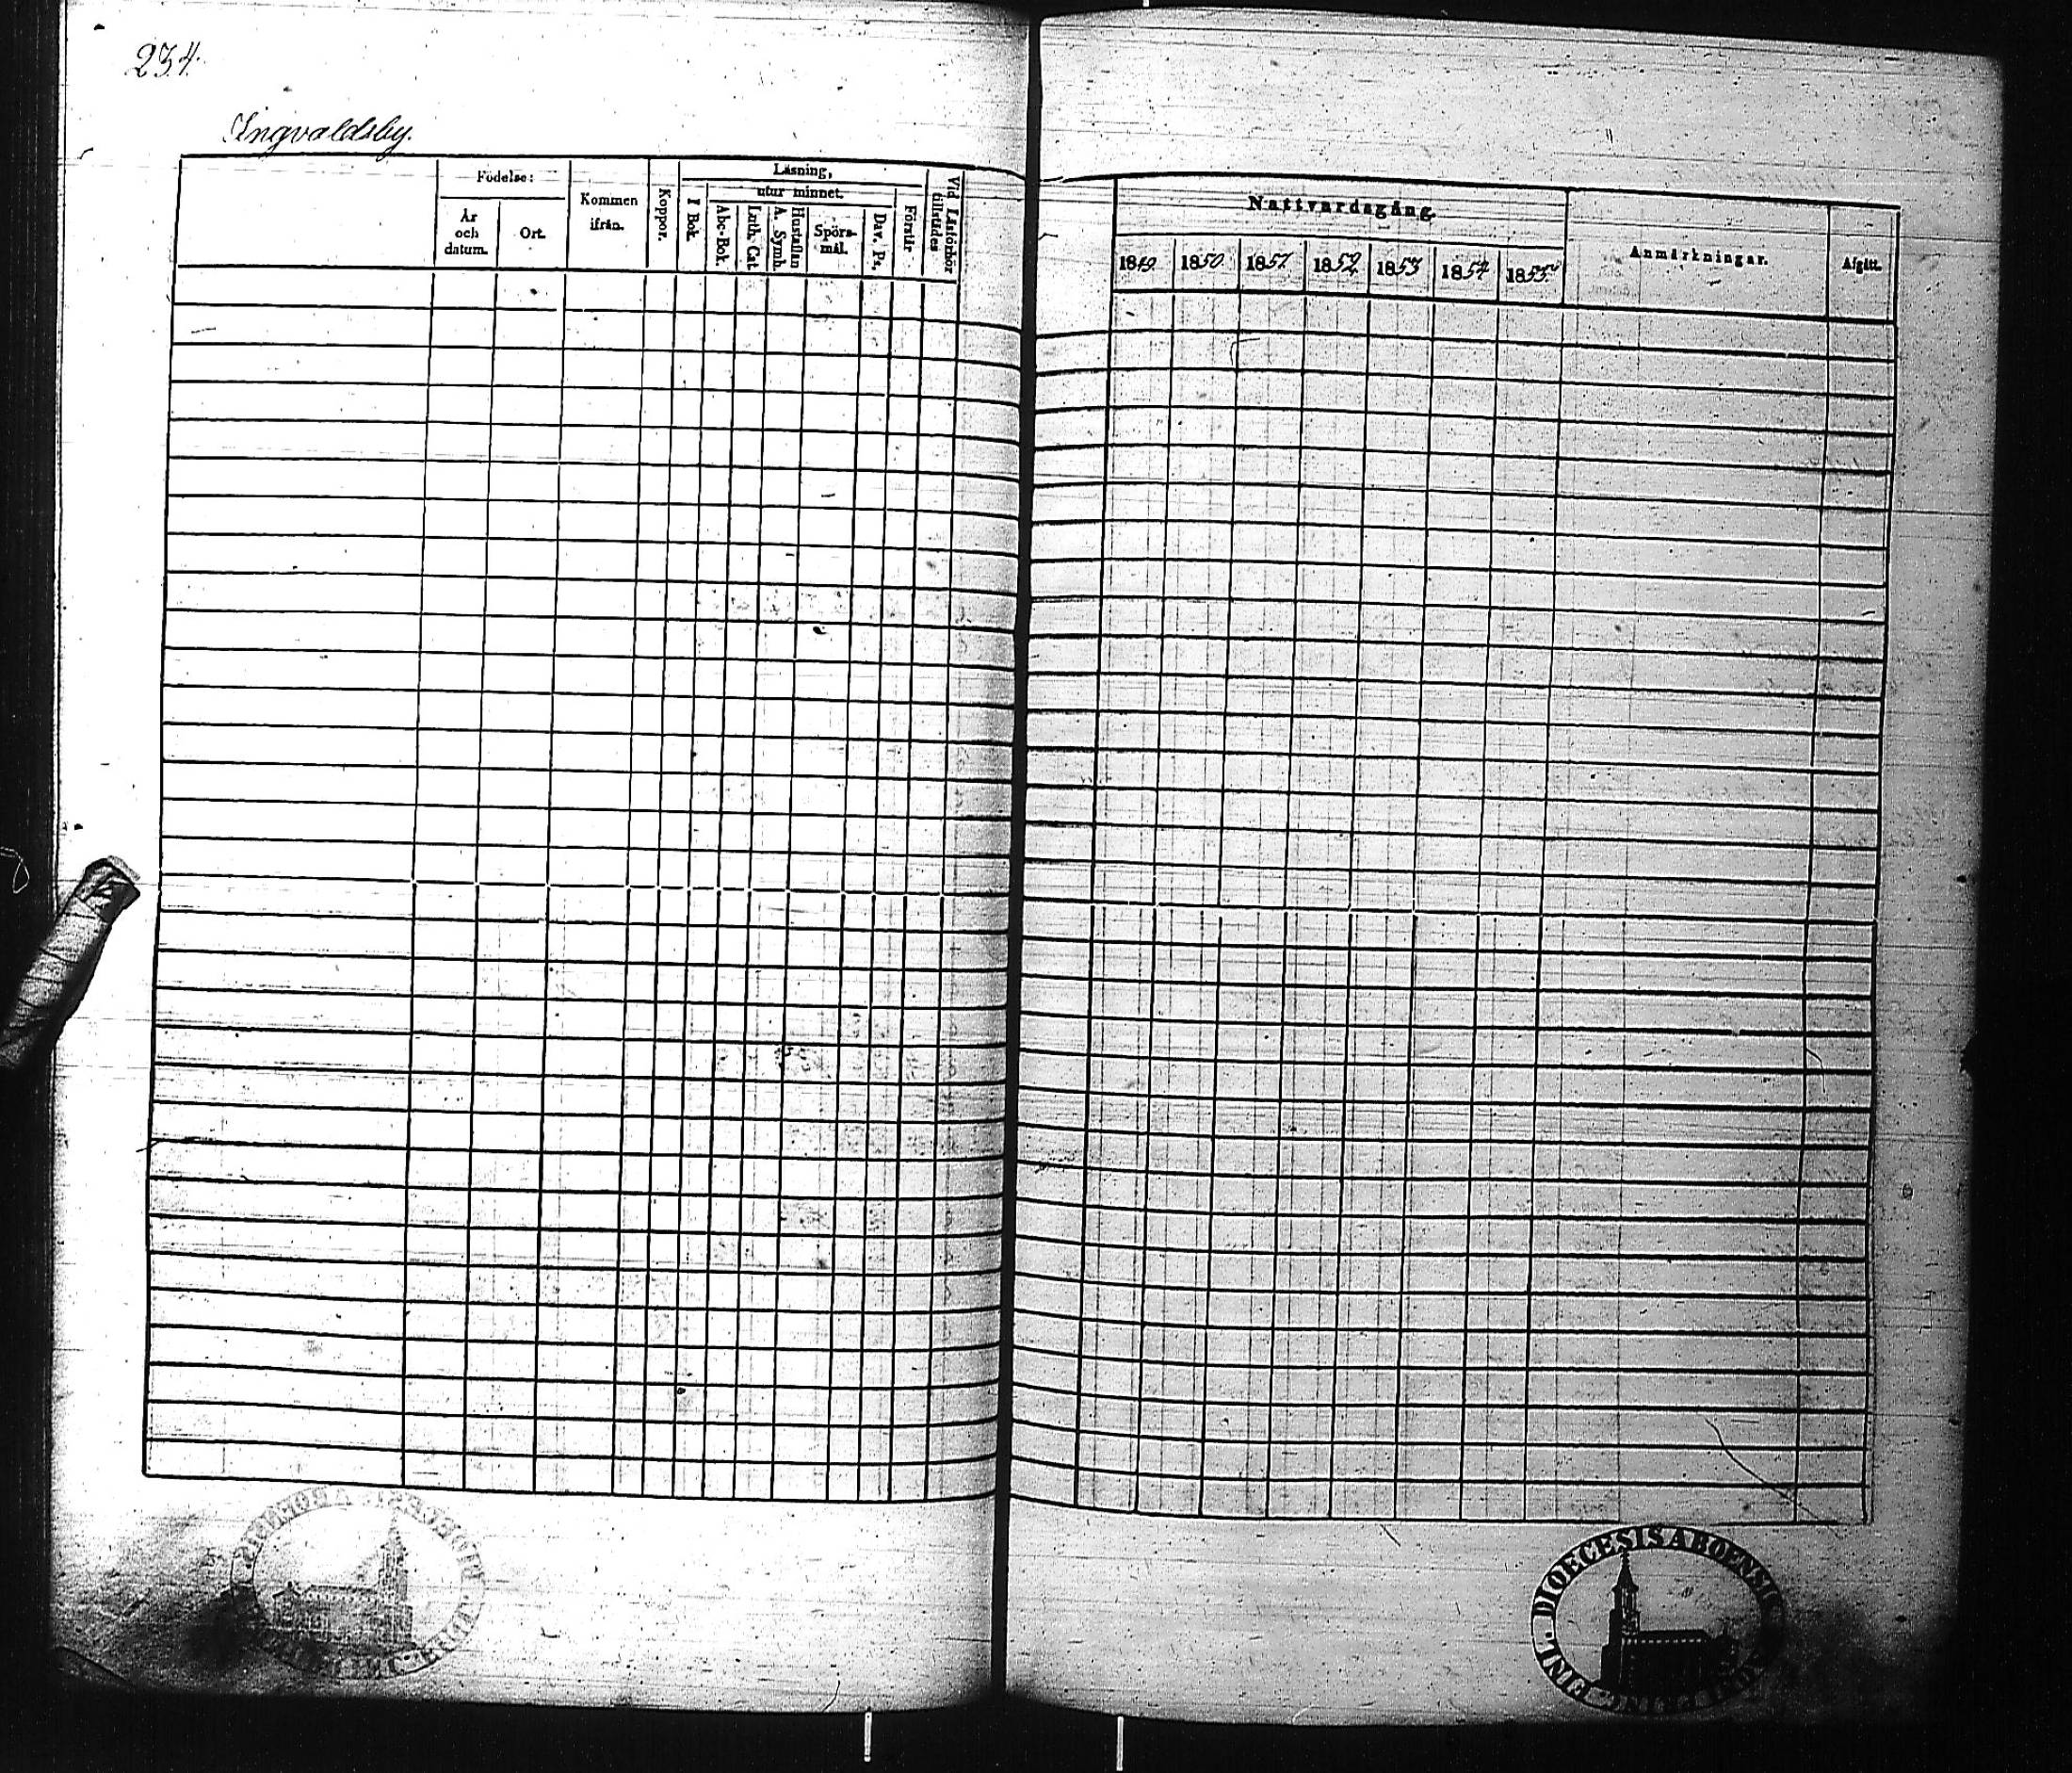 234.
Ingvaldsby.
Födelse:
År och datum.
Ort.
Kommen ifrån.
Koppor.
Läsning,
utur minnet.
I Bok.
Abc-Bok.
Luth. Cat.
Hustaflan A. Symb.
Spörs-mål.
Dav. Ps.
Förstår
Vid Läsförhör tillstädes
Nattvardsgång.
1849. 1850. 1851. 1852. 1853 1854 1855.
Anmärkningar.
Afgått.
DIOECESIS ABOENSIS